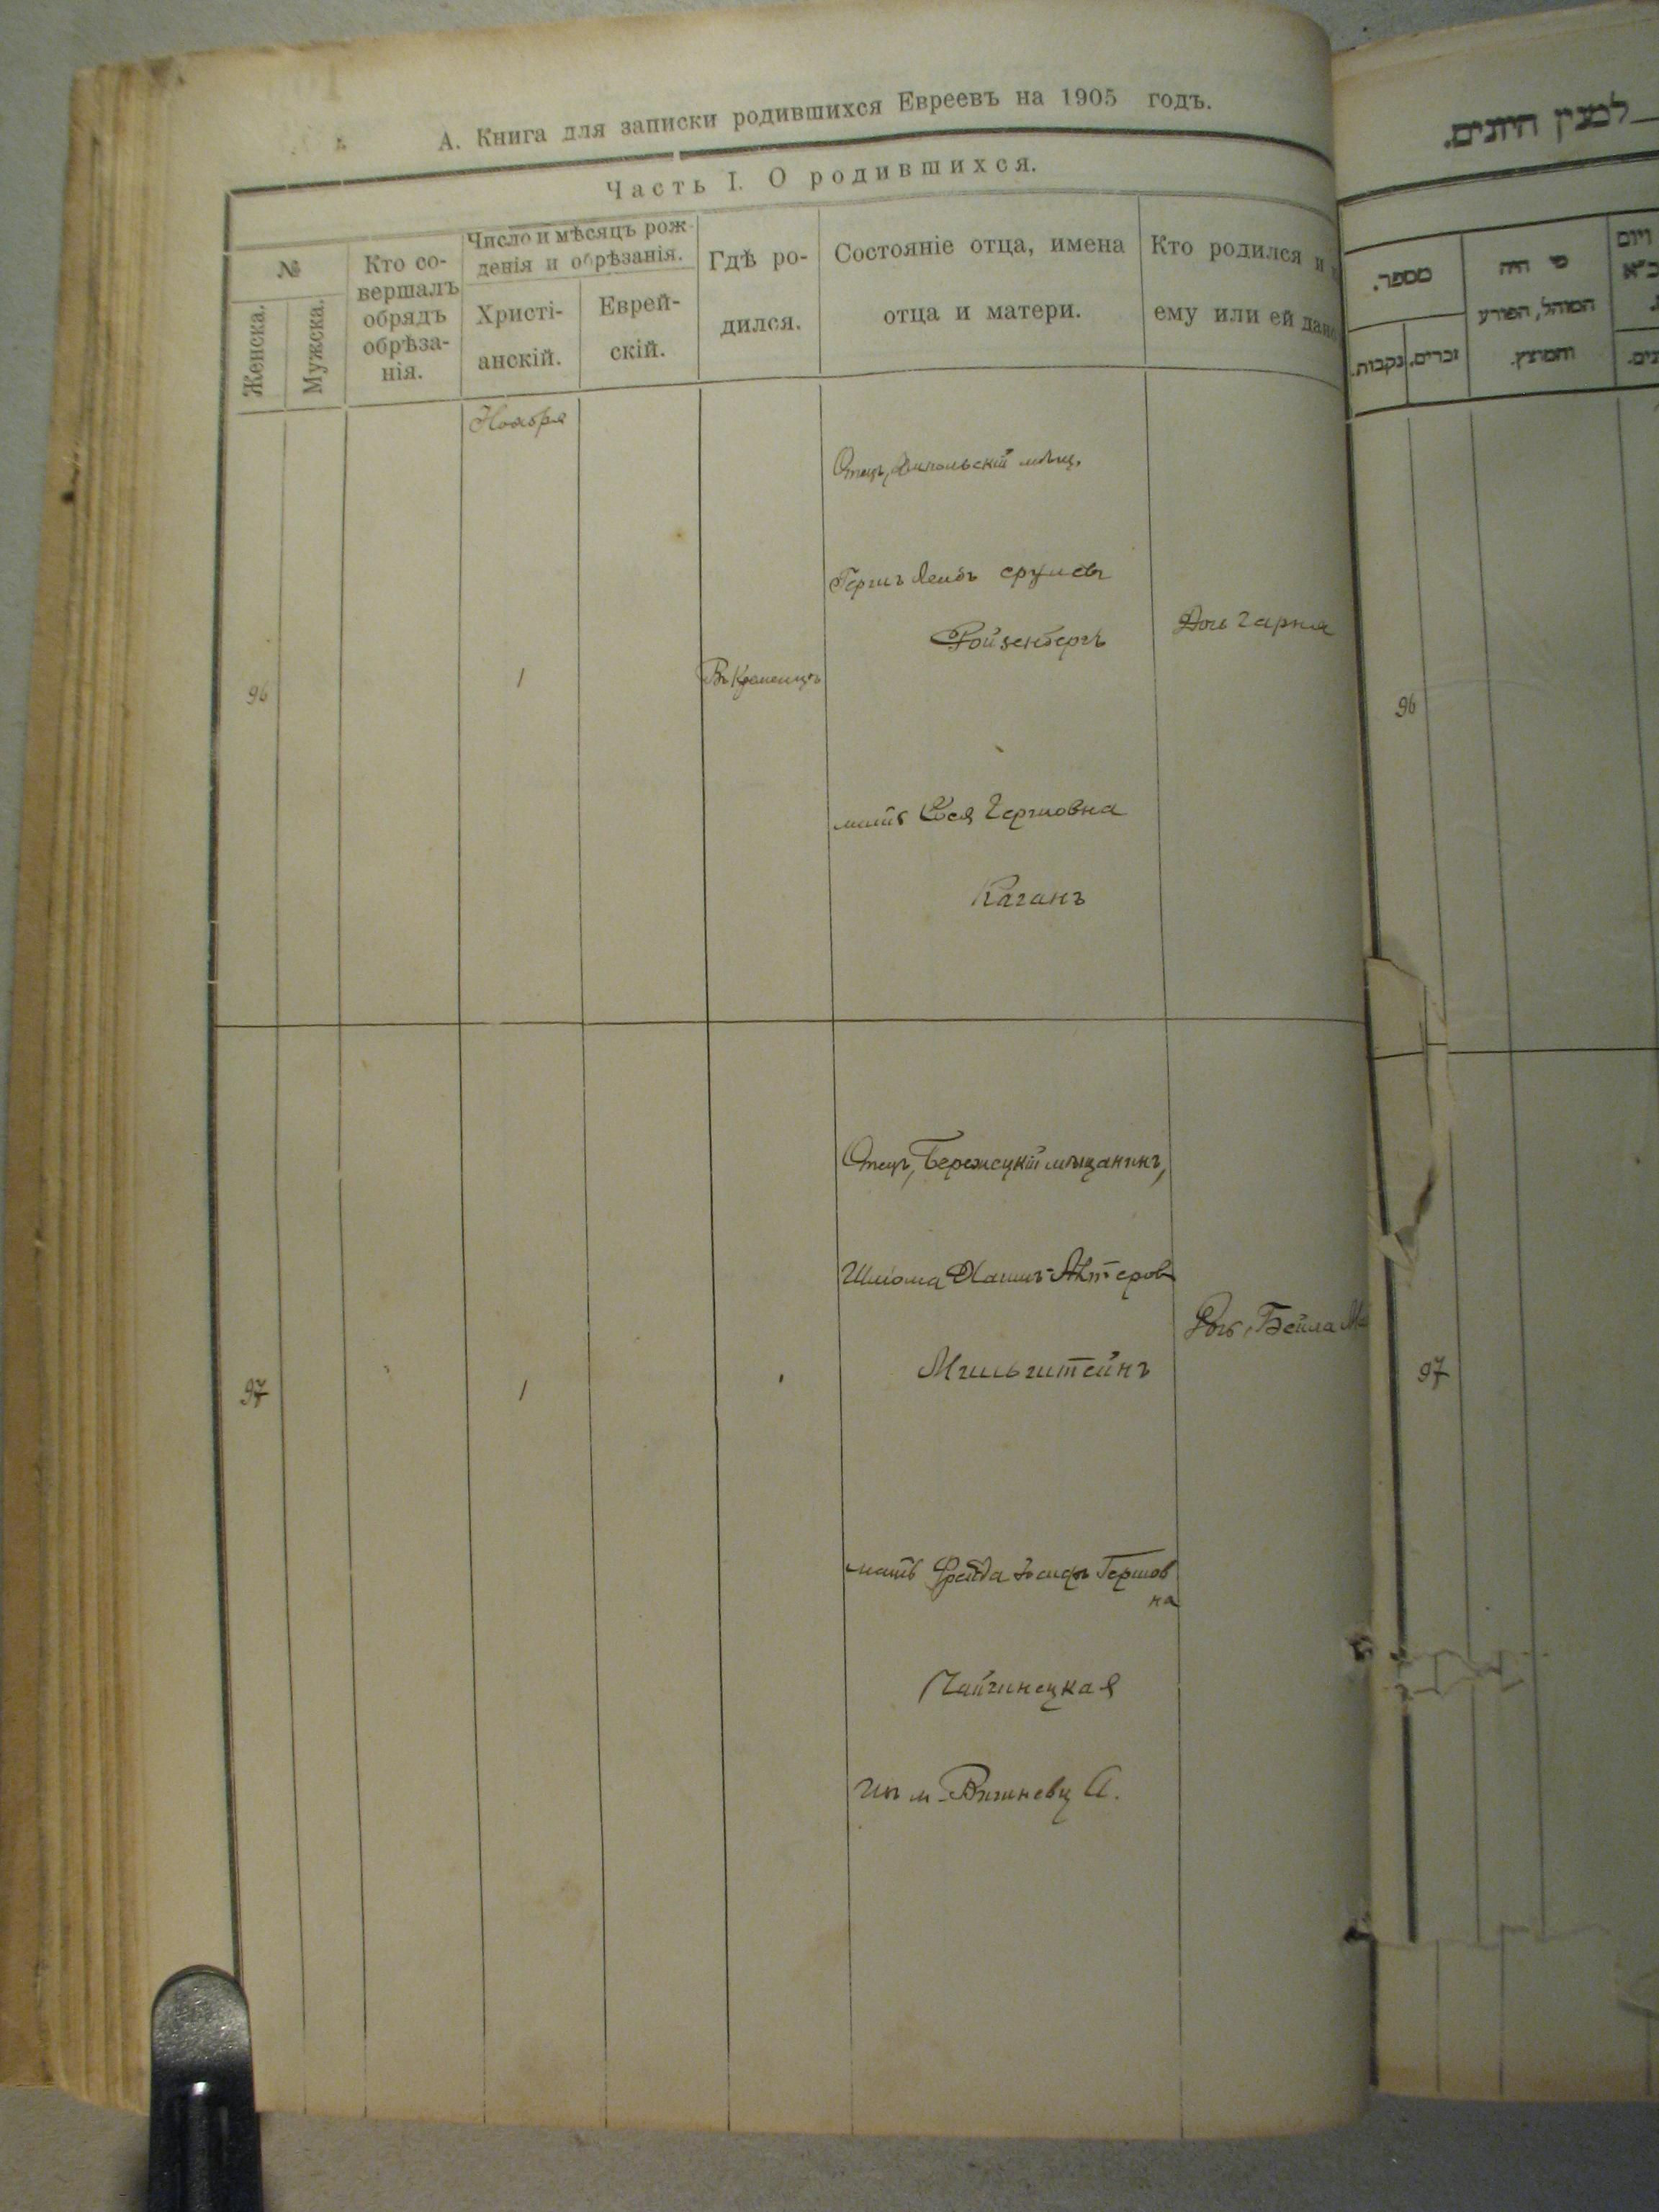 А. Книга для записки родившихся Евреевъ на 1905 годъ.
Часть I. О родившихся.
№
Женска.
Мужска.
Кто со-
вершалъ
обрядъ
обрѣза-
нія.
Число и мѣсяцъ рож-
денія и обрѣзанія.
Христі-
анскій.
Еврей-
скій.
Гдѣ ро-
дился.
Состояніе отца, имена
отца и матери.
Кто родился и
ему или ей дано
Ноября
96
1
Въ Кременцѣ
Отецъ, мѣщ.
Гершъ Лейбъ Сруловъ
Ройзенбергъ
мать Гершовна
Каганъ
Дочь Чарна
97
1
Отецъ, Бережецкій мѣщанинъ,
Шлёма Альтеровъ
Мильштейнъ
мать Фрейда Гершов
на
Чайчинецкая
м. Вишневц
Дочь, Бейла
למנין היונים.
מספר.
זכרים.
נקבות.
מי היה
המוהל, הפורע
והמוצץ.
ויום
96
97